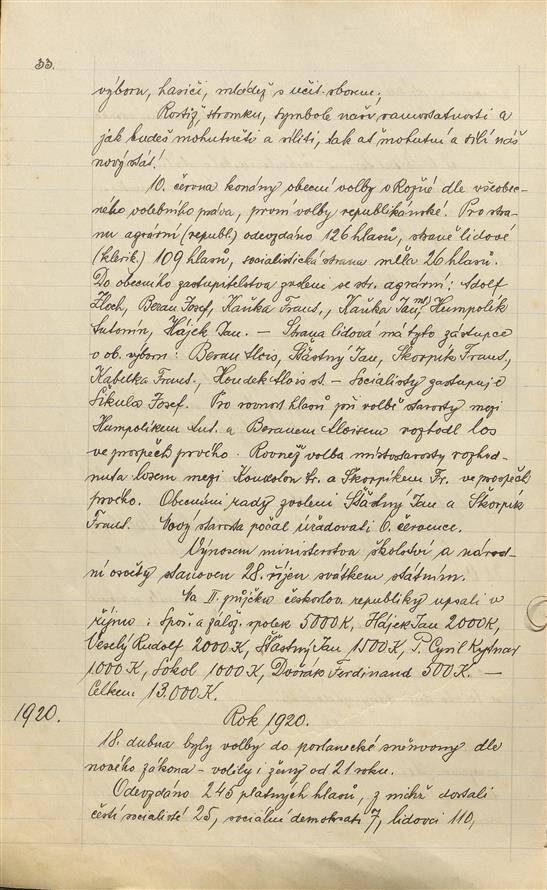 33.
výboru, hasiči, mládež s učit. sborem.
Rostiž, stromku, symbole naší samostatnosti a
jak budeš mohutněti a síliti, tak ať mohutní a sílí náš
nový stát!
10. června konány obecní volby v Rožné dle všeobec-
ného volebního práva, první volby republikánské. Pro stra-
nu agrární (republ) odevzdáno 126 hlasů, straně lidové
(klerik.) 109 hlasů, socialistická strana měla 26 hlasů.
Do obecního zastupitelstva zvoleni ze str. agrární: Adolf
Zloch, Beran Josef, Kaňka Frant., Kaňka Jan ml., Humpolík
Antonín, Hájek Jan. – Strana lidová má tyto zástupce
v ob. výboru: Beran Alois, Šťastný Jan, Škorpík Frant.,
Kabelka Frant., Houdek Alois st. – Socialisty zastupuje
Šikula Josef. Pro rovnost hlasů při volbě starosty mezi
Humpolíkem Ant. a Beranem Aloisem rozhodl los
ve prospěch prvého. Rovněž volba místostarosty rozhod-
nuta losem mezi Fr. a Škorpíkem Fr. ve prospěch
prvého. Obecními rady zvoleni Šťastný Jan a Škorpík
Frant. Nový starosta počal úřadovati 6. července.
Výnosem ministerstva školství a národ-
ní osvěty stanoven 28. říjen svátkem státním.
Na II. půjčku českoslov. republiky upsali v
říjnu: Spoř. a zálož. spolek 5000 K, Hájek Jan 2000 K,
Veselý Rudolf 2000 K, Šťastný Jan 1500 K, P. Cyril
1000 K, Sokol 1000 K, Dvořák Ferdinand 500 K. –
Celkem 13.000 K.
1920.
Rok 1920.
18. dubna byly volby do poslanecké sněmovny dle
nového zákona – volily i ženy od 21 roku.
Odevzdáno 245 platných hlasů, z nichž dostali
čeští socialisté 25, sociální demokrati 7, lidovci 110,